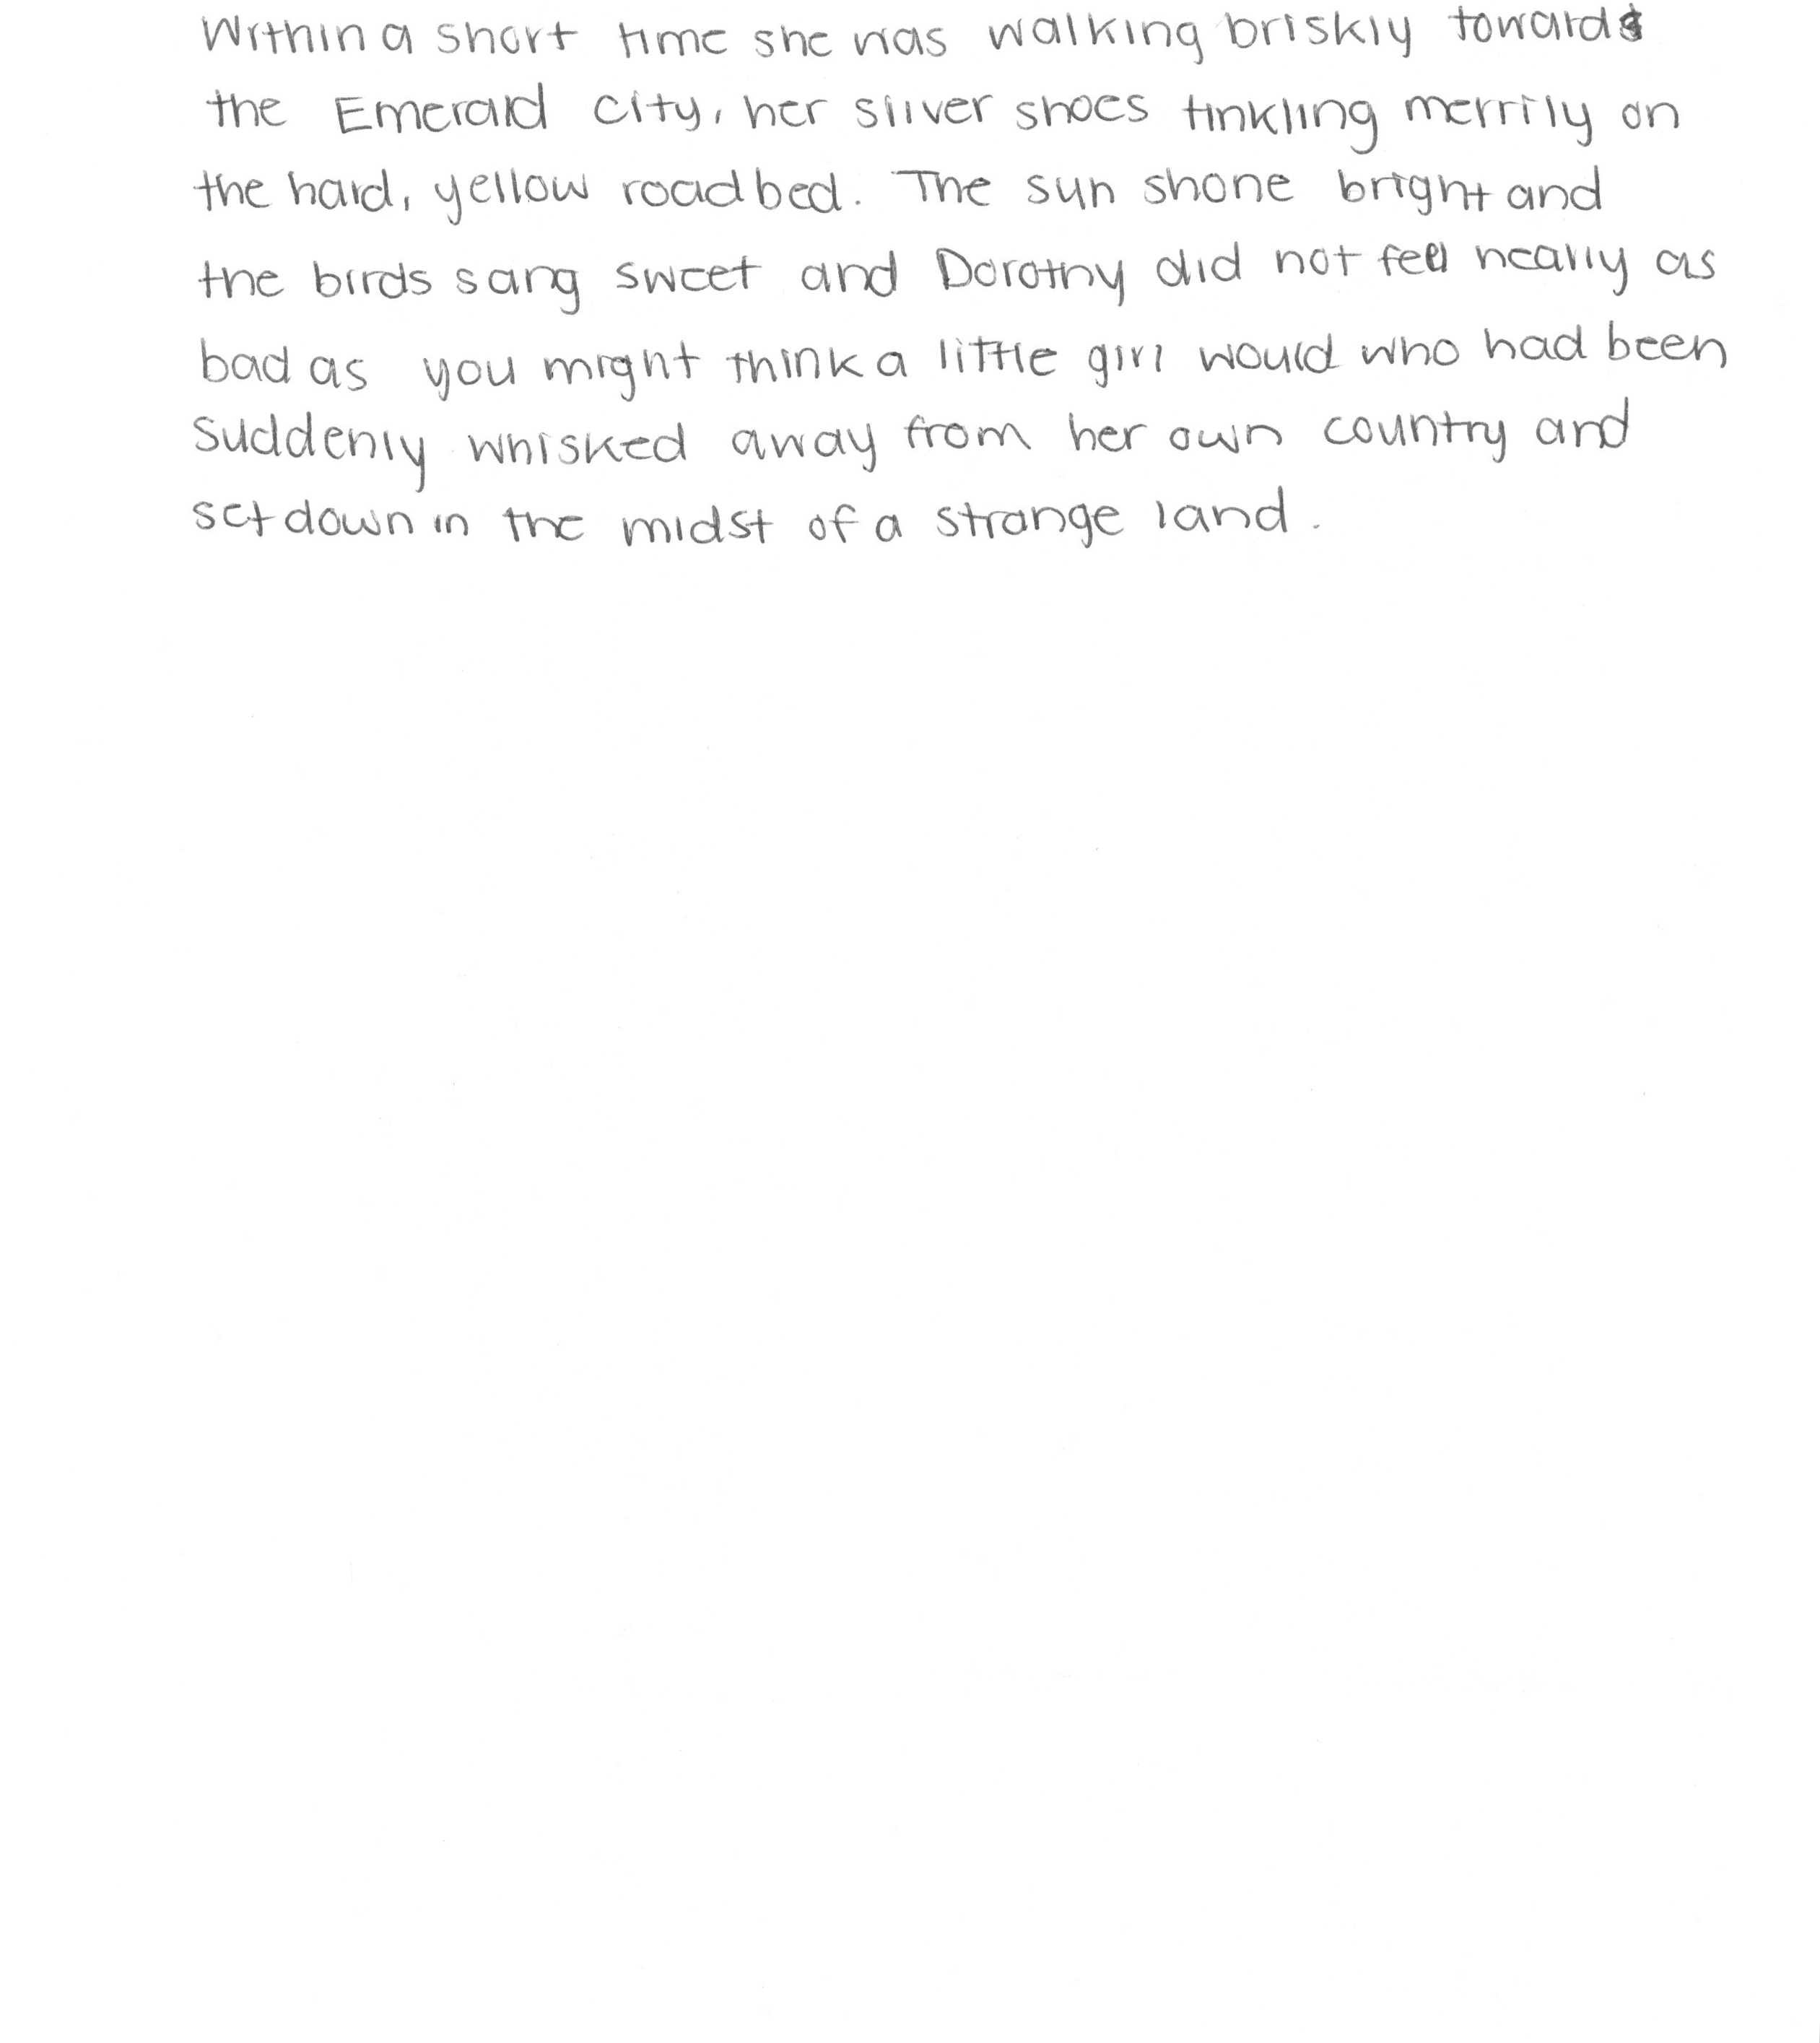 Within a short time she was walking briskly towards
the Emerald City, her silver shoes tinkling merrily on
the hard, yellow roadbed. The sun shone bright and
the birds sang sweet and Dorothy did not feel nearly as
bad as you might think a little girl would who had been
suddenly whisked away from her own country and
set down in the midst of a strange land.